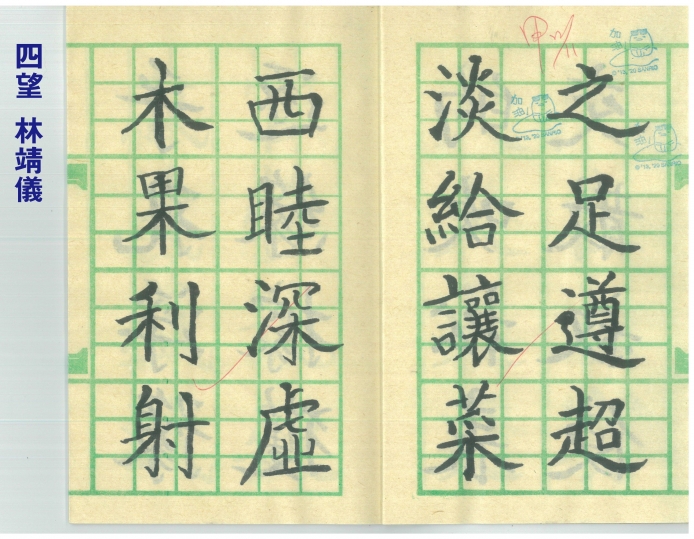 四望 林靖儀
之足遵超
淡給讓菜
西睦深虛
木果利射
甲
加油
加油
加油